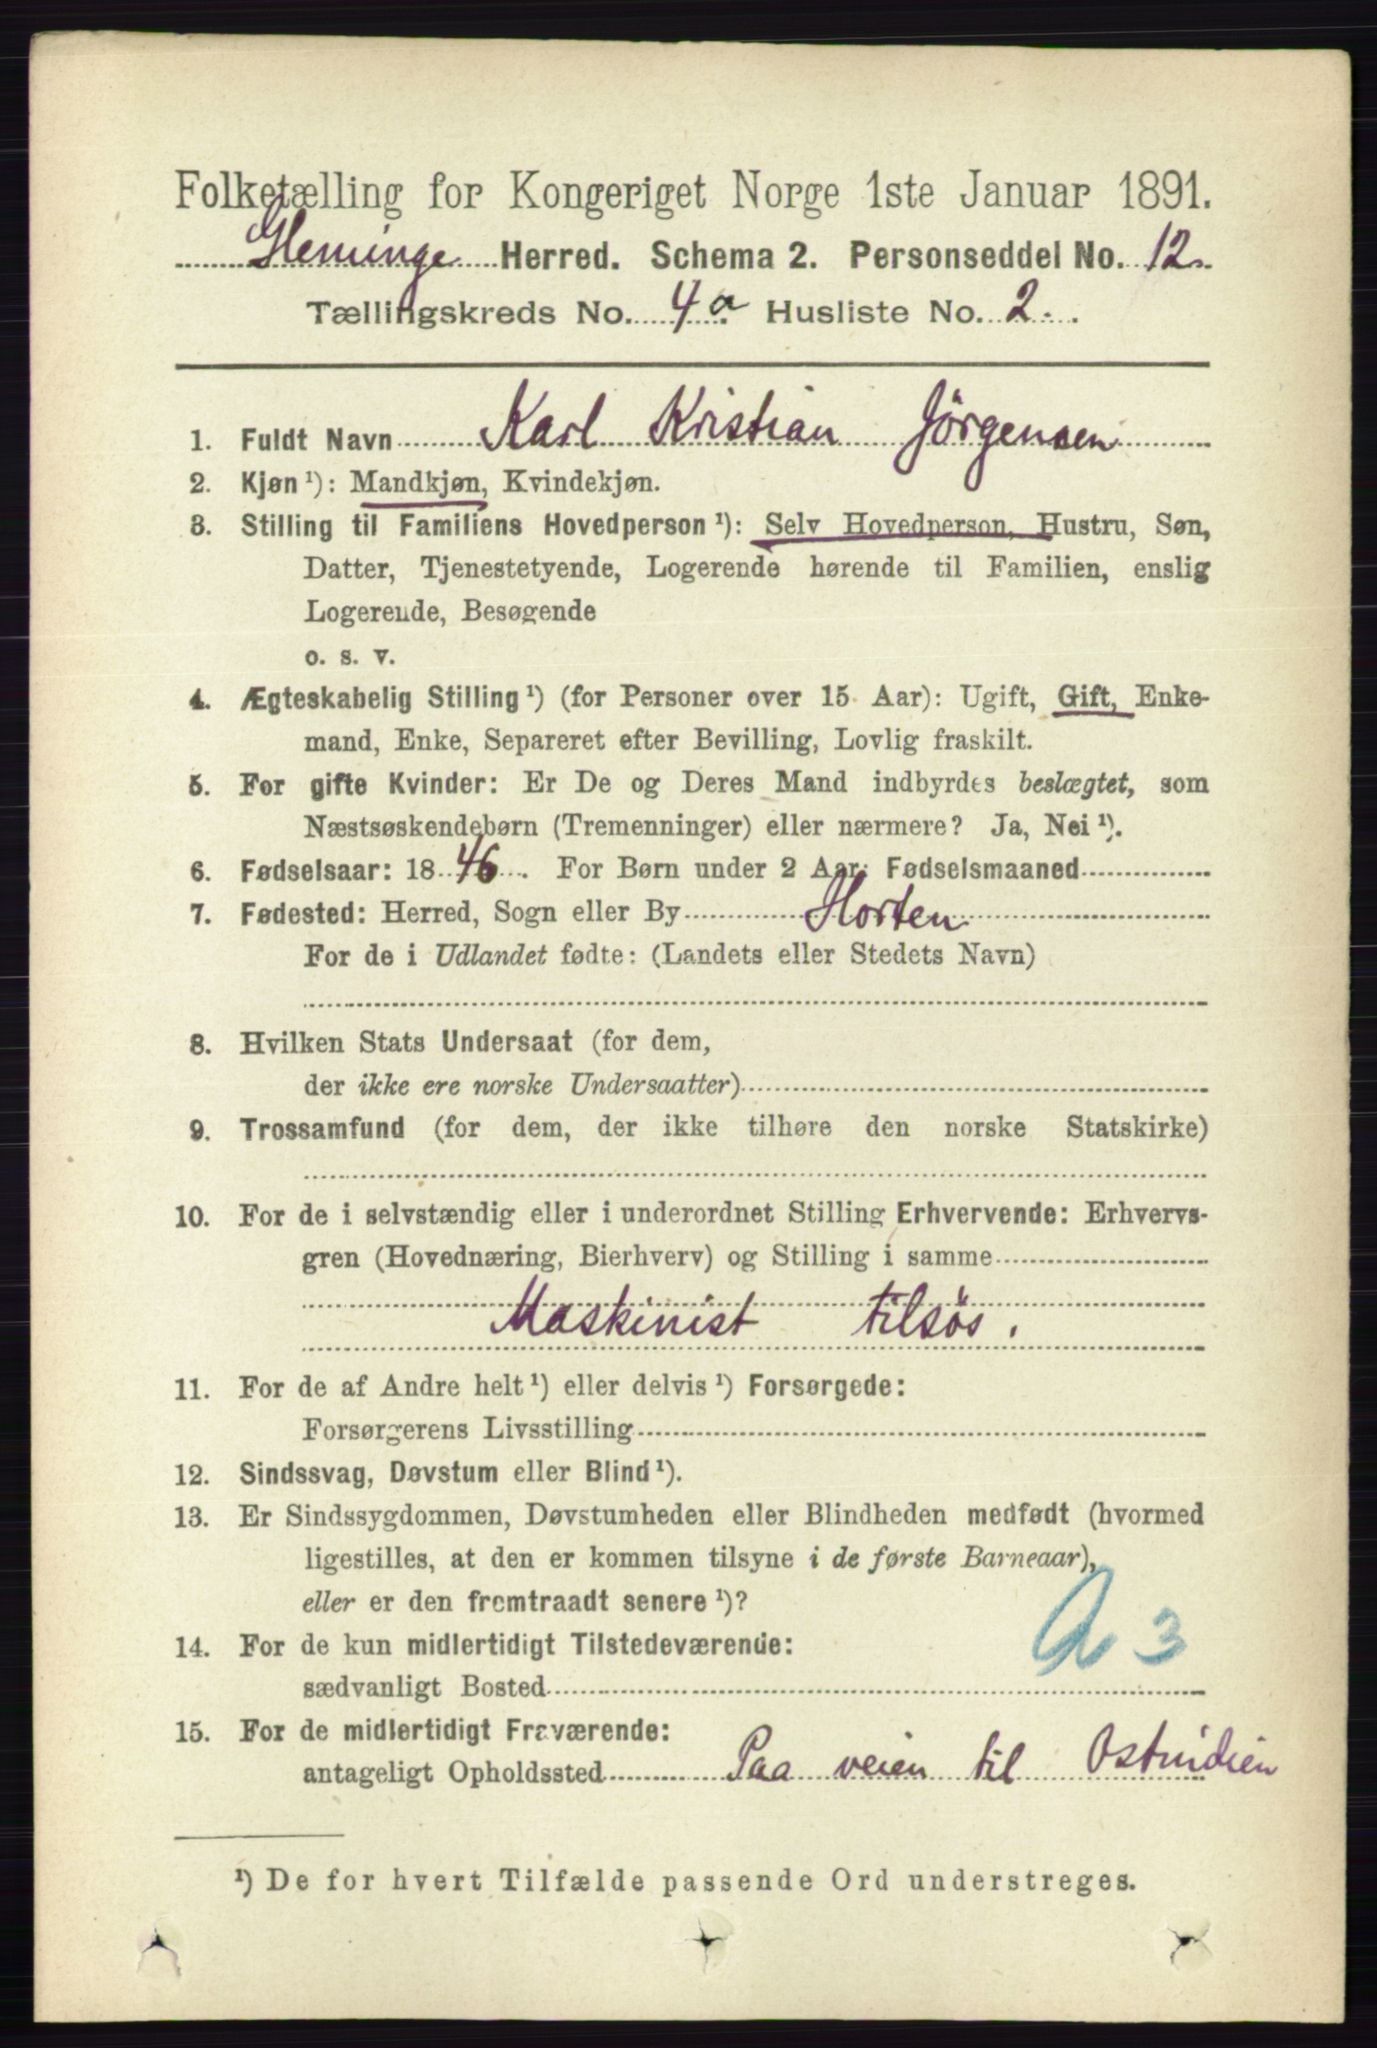 Folketælling for Kongeriget Norge 1ste Januar 1891.
Gleminge Herred. Schema 2. Personseddel No. 12.
Tællingskreds No. 4a Husliste No. 2.
1. Fuldt Navn Karl Kristian Jörgensen
2. Kjøn ¹): Mandkjøn, Kvindekjøn.
3. Stilling til Familiens Hovedperson ¹): Selv Hovedperson, Hustru, Søn,
Datter, Tjenestetyende, Logerende hørende til Familien, enslig
Logerende, Besøgende
o. s. v.
4. Ægteskabelig Stilling ¹) (for Personer over 15 Aar): Ugift, Gift, Enke-
mand, Enke, Separeret efter Bevilling, Lovlig fraskilt.
5. For gifte Kvinder: Er De og Deres Mand indbyrdes beslægtet, som
Næstsøskendebørn (Tremenninger) eller nærmere? Ja, Nei ¹).
6. Fødselsaar: 1846. For Børn under 2 Aar: Fødselsmaaned
7. Fødested: Herred, Sogn eller By Horten
For de i Udlandet fødte: (Landets eller Stedets Navn)
8. Hvilken Stats Undersaat (for dem,
der ikke ere norske Undersaatter)
9. Trossamfund (for dem, der ikke tilhøre den norske Statskirke)
10. For de i selvstændig eller i underordnet Stilling Erhvervende: Erhvervs-
gren (Hovednæring, Bierhverv) og Stilling i samme
Maskinist tilsös.
11. For de af Andre helt ¹) eller delvis ¹) Forsørgede:
Forsørgerens Livsstilling
12. Sindssvag, Døvstum eller Blind ¹).
13. Er Sindssygdommen, Døvstumheden eller Blindheden medfødt (hvormed
ligestilles, at den er kommen tilsyne i de første Barneaar),
eller er den fremtraadt senere ¹)?
14. For de kun midlertidigt Tilstedeværende:
sædvanligt Bosted
15. For de midlertidigt Fraværende:
antageligt Opholdssted Paa veien til Ostindien
¹) De for hvert Tilfælde passende Ord understreges.